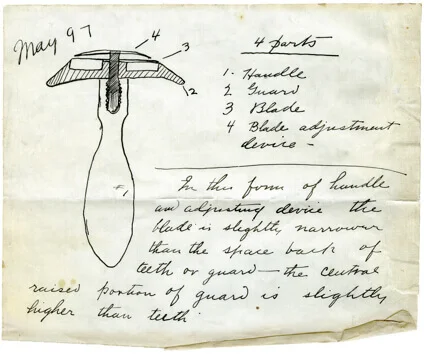 May 97
4
3
2
#1
4 parts
1. Handle
2 Guard
3 Blade
4 Blade adjustment
device -
In this form of handle
and adjusting device the
blade is slightly narrower
than the space back of
teeth or guard - the central
raised portion of guard is slightly
higher than teeth